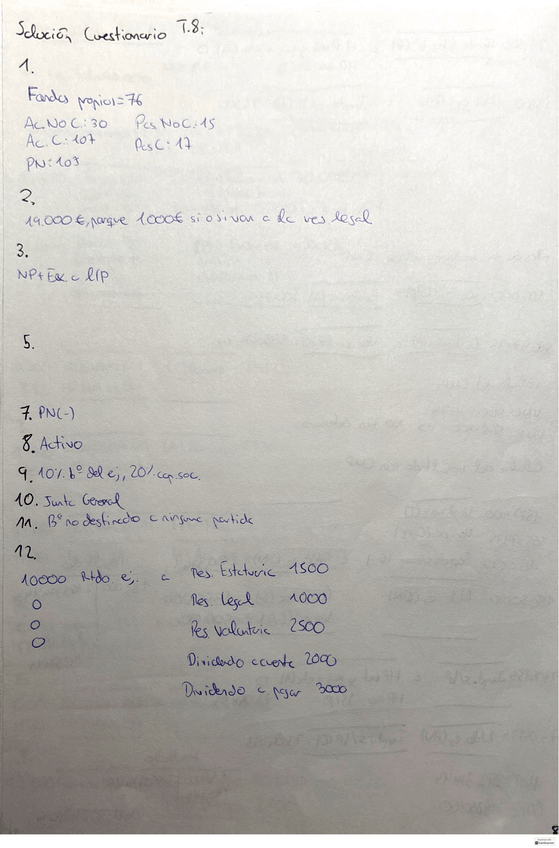 Solución Cuestionario T.8:
1.
Fondos propios=76
Ac.No C.:30 Pas No C.:15
Ac. C.: 107 Pas C: 17
PN:103
2.
19.000€, porque 1000€ si o si van a la res legal
3.
NP+Ex a l/p
5.
7. PN(-)
8. Activo
9. 10% bº del ej, 20% cap.soc.
10. Junta General
11. Bº no destinado a ninguna partida
12
10000 Rtdo ej. a Res. Estatuaria 1500
0 Res. Legal 1000
0 Res Voluntaria 2500
0 Dividendo a cuenta 2000
Dividendo a pagar 3000
8